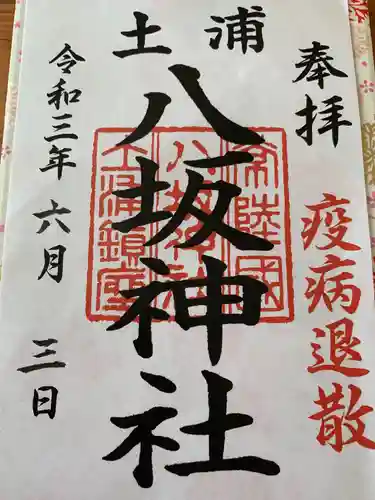 奉拝
疫病退散
土浦
八坂神社
常陸國
八坂神社
土浦鎮座
令和三年 六月 三日